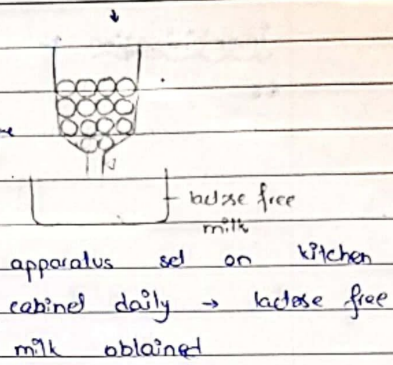 lactose free
milk
apparatus set on kitchen
cabinet daily → lactose free
milk obtained